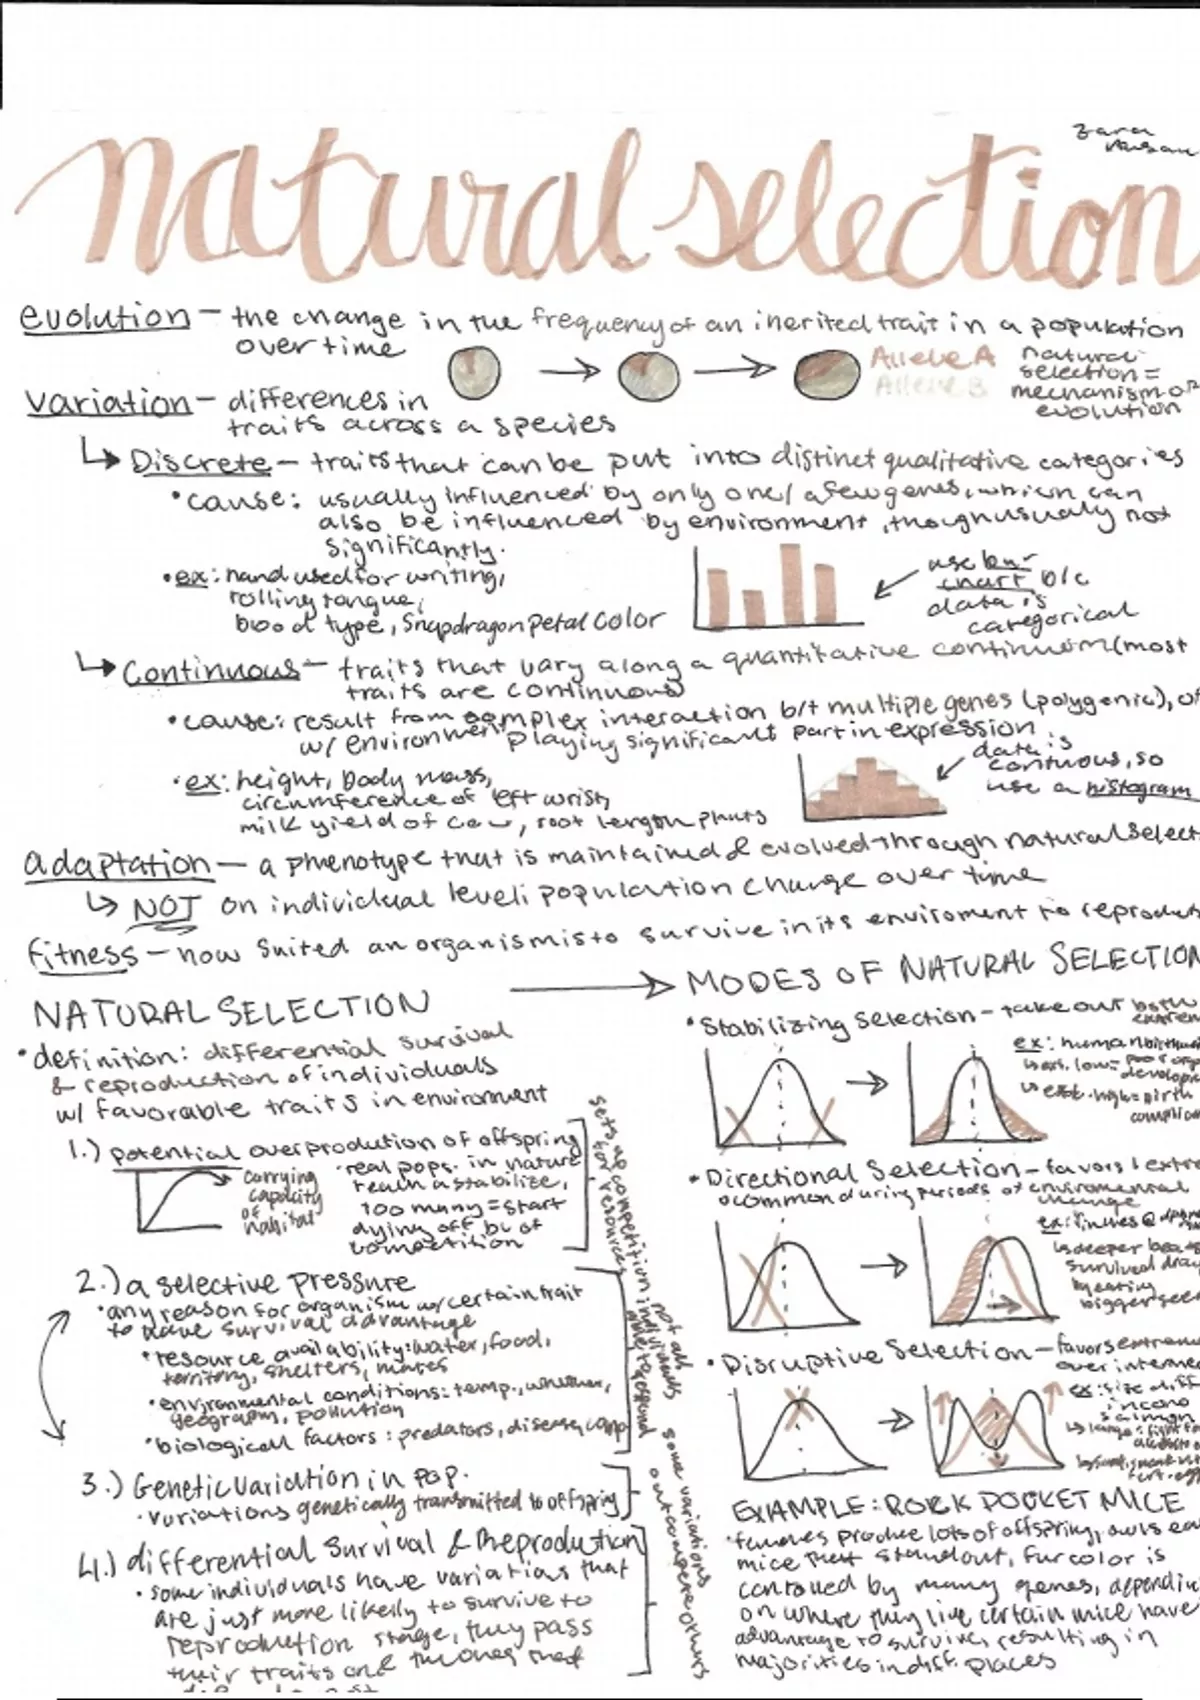 Zara
natural selection
evolution - the change in the frequency of an inerited trait in a population
over time
Allele A
Allele B
natural
selection =
mechanism of
evolution
Variation - differences in
traits across a species
↳ Discrete - traits that can be put into distinct qualitative categories
• cause: usually influenced by only one/a few genes, which can
also be influenced by environment, though usually not
significantly.
• ex: hand used for writing,
rolling tongue,
blood type, Snapdragon petal color
use bar
chart b/c
data is
categorical
↳ Continuous - traits that vary along a quantitative continuum (most
traits are continuous)
• cause: result from complex interaction b/t multiple genes (polygenic), of
w/ environment playing significant part in expression
• ex: height, body mass,
circumference of left wrist,
milk yield of cow, root length plants
data is
contnuous, so
use a histogram
adaptation - a phenotype that is maintained & evolved through natural select
↳ NOT on individual level; population change over time
fitness - how suited an organism is to survive in its enviroment to reproduc
NATURAL SELECTION
• definition: differential survival
& reproduction of individuals
w/ favorable traits in environment
1.) potential overproduction of offspring
carrying
capacity
of
habitat
• real pops. in nature
reach a stabilize,
too many = start
dying off bc of
competition
sets up competition
for resources
2.) a selective pressure
• any reason for organism w/ certain trait
to have survival advantage
• resource availability: water, food,
territory, shelters, mates
• environmental conditions: temp., wheather,
geography, pollution
• biological factors: predators, disease,
not all
individuals
3.) Genetic variation in pop.
• variations genetically transmitted to offspring
some variations
outcompete others
4.) differential Survival & Reproduction
• some individuals have variations that
are just more likely to survive to
reproduction stage, they pass
their traits and the ones that
→ MODES OF NATURAL SELECTION
• Stabilizing selection - take out both
extrem
ex: human birth
• Directional Selection - favors 1 extre
↳ common during periods of enviromental
change
ex: finches @
↳ deeper bea
survived
by eating
bigger see
• Disruptive Selection - favors extrem
over interme
ex: size diff
in coho
salmon
EXAMPLE: ROCK POCKET MICE
• females produce lots of offspring, owls ea
mice that standout, fur color is
controlled by many genes, dependin
on where they live certain mice have
advantage to survive, resulting in
majorities in diff. places